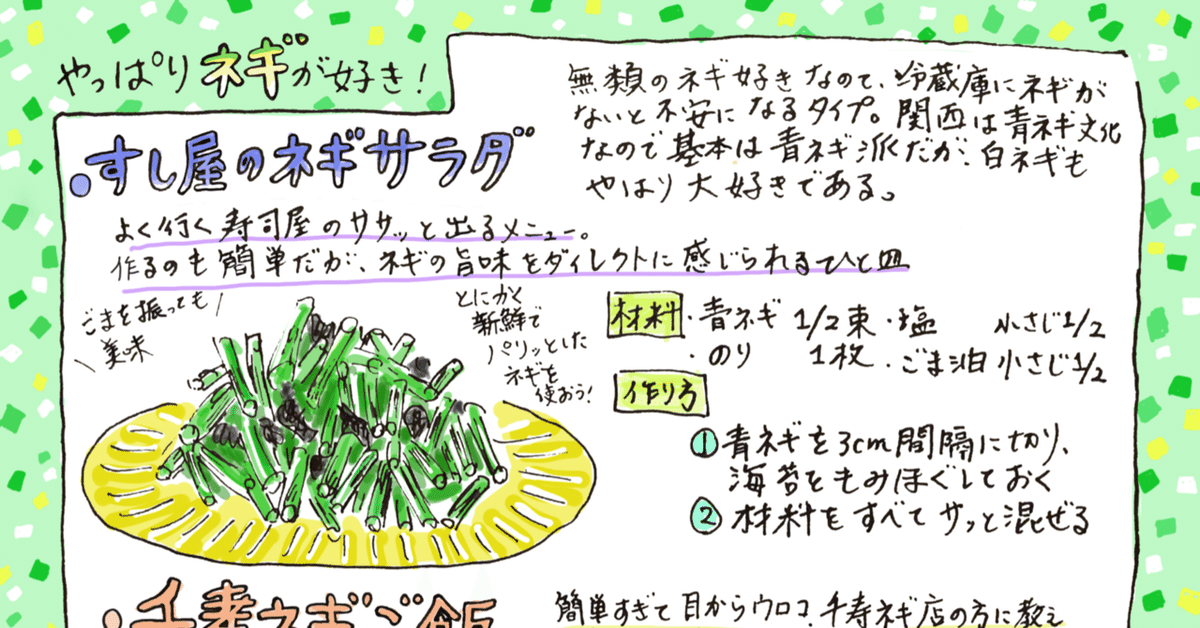 やっぱりネギが好き!
無類のネギ好きなので、冷蔵庫にネギが
ないと不安になるタイプ。関西は青ネギ文化
なので基本は青ネギ派だが、白ネギも
やはり大好きである。
・すし屋のネギサラダ
よく行く寿司屋のササッと出るメニュー。
作るのも簡単だが、ネギの旨味をダイレクトに感じられるひと皿
ごまを振っても
美味
とにかく
新鮮で
パリッとした
ネギを
使おう!
材料・青ネギ 1/2束・塩 小さじ1/2
・のり 1枚・ごま油 小さじ1/2
作り方
① 青ネギを3cm間隔に切り、
海苔ともみほぐしておく
② 材料をすべてサッと混ぜる
・千寿ネギご飯
簡単すぎて目からウロコ。千寿ネギ店の方に教え